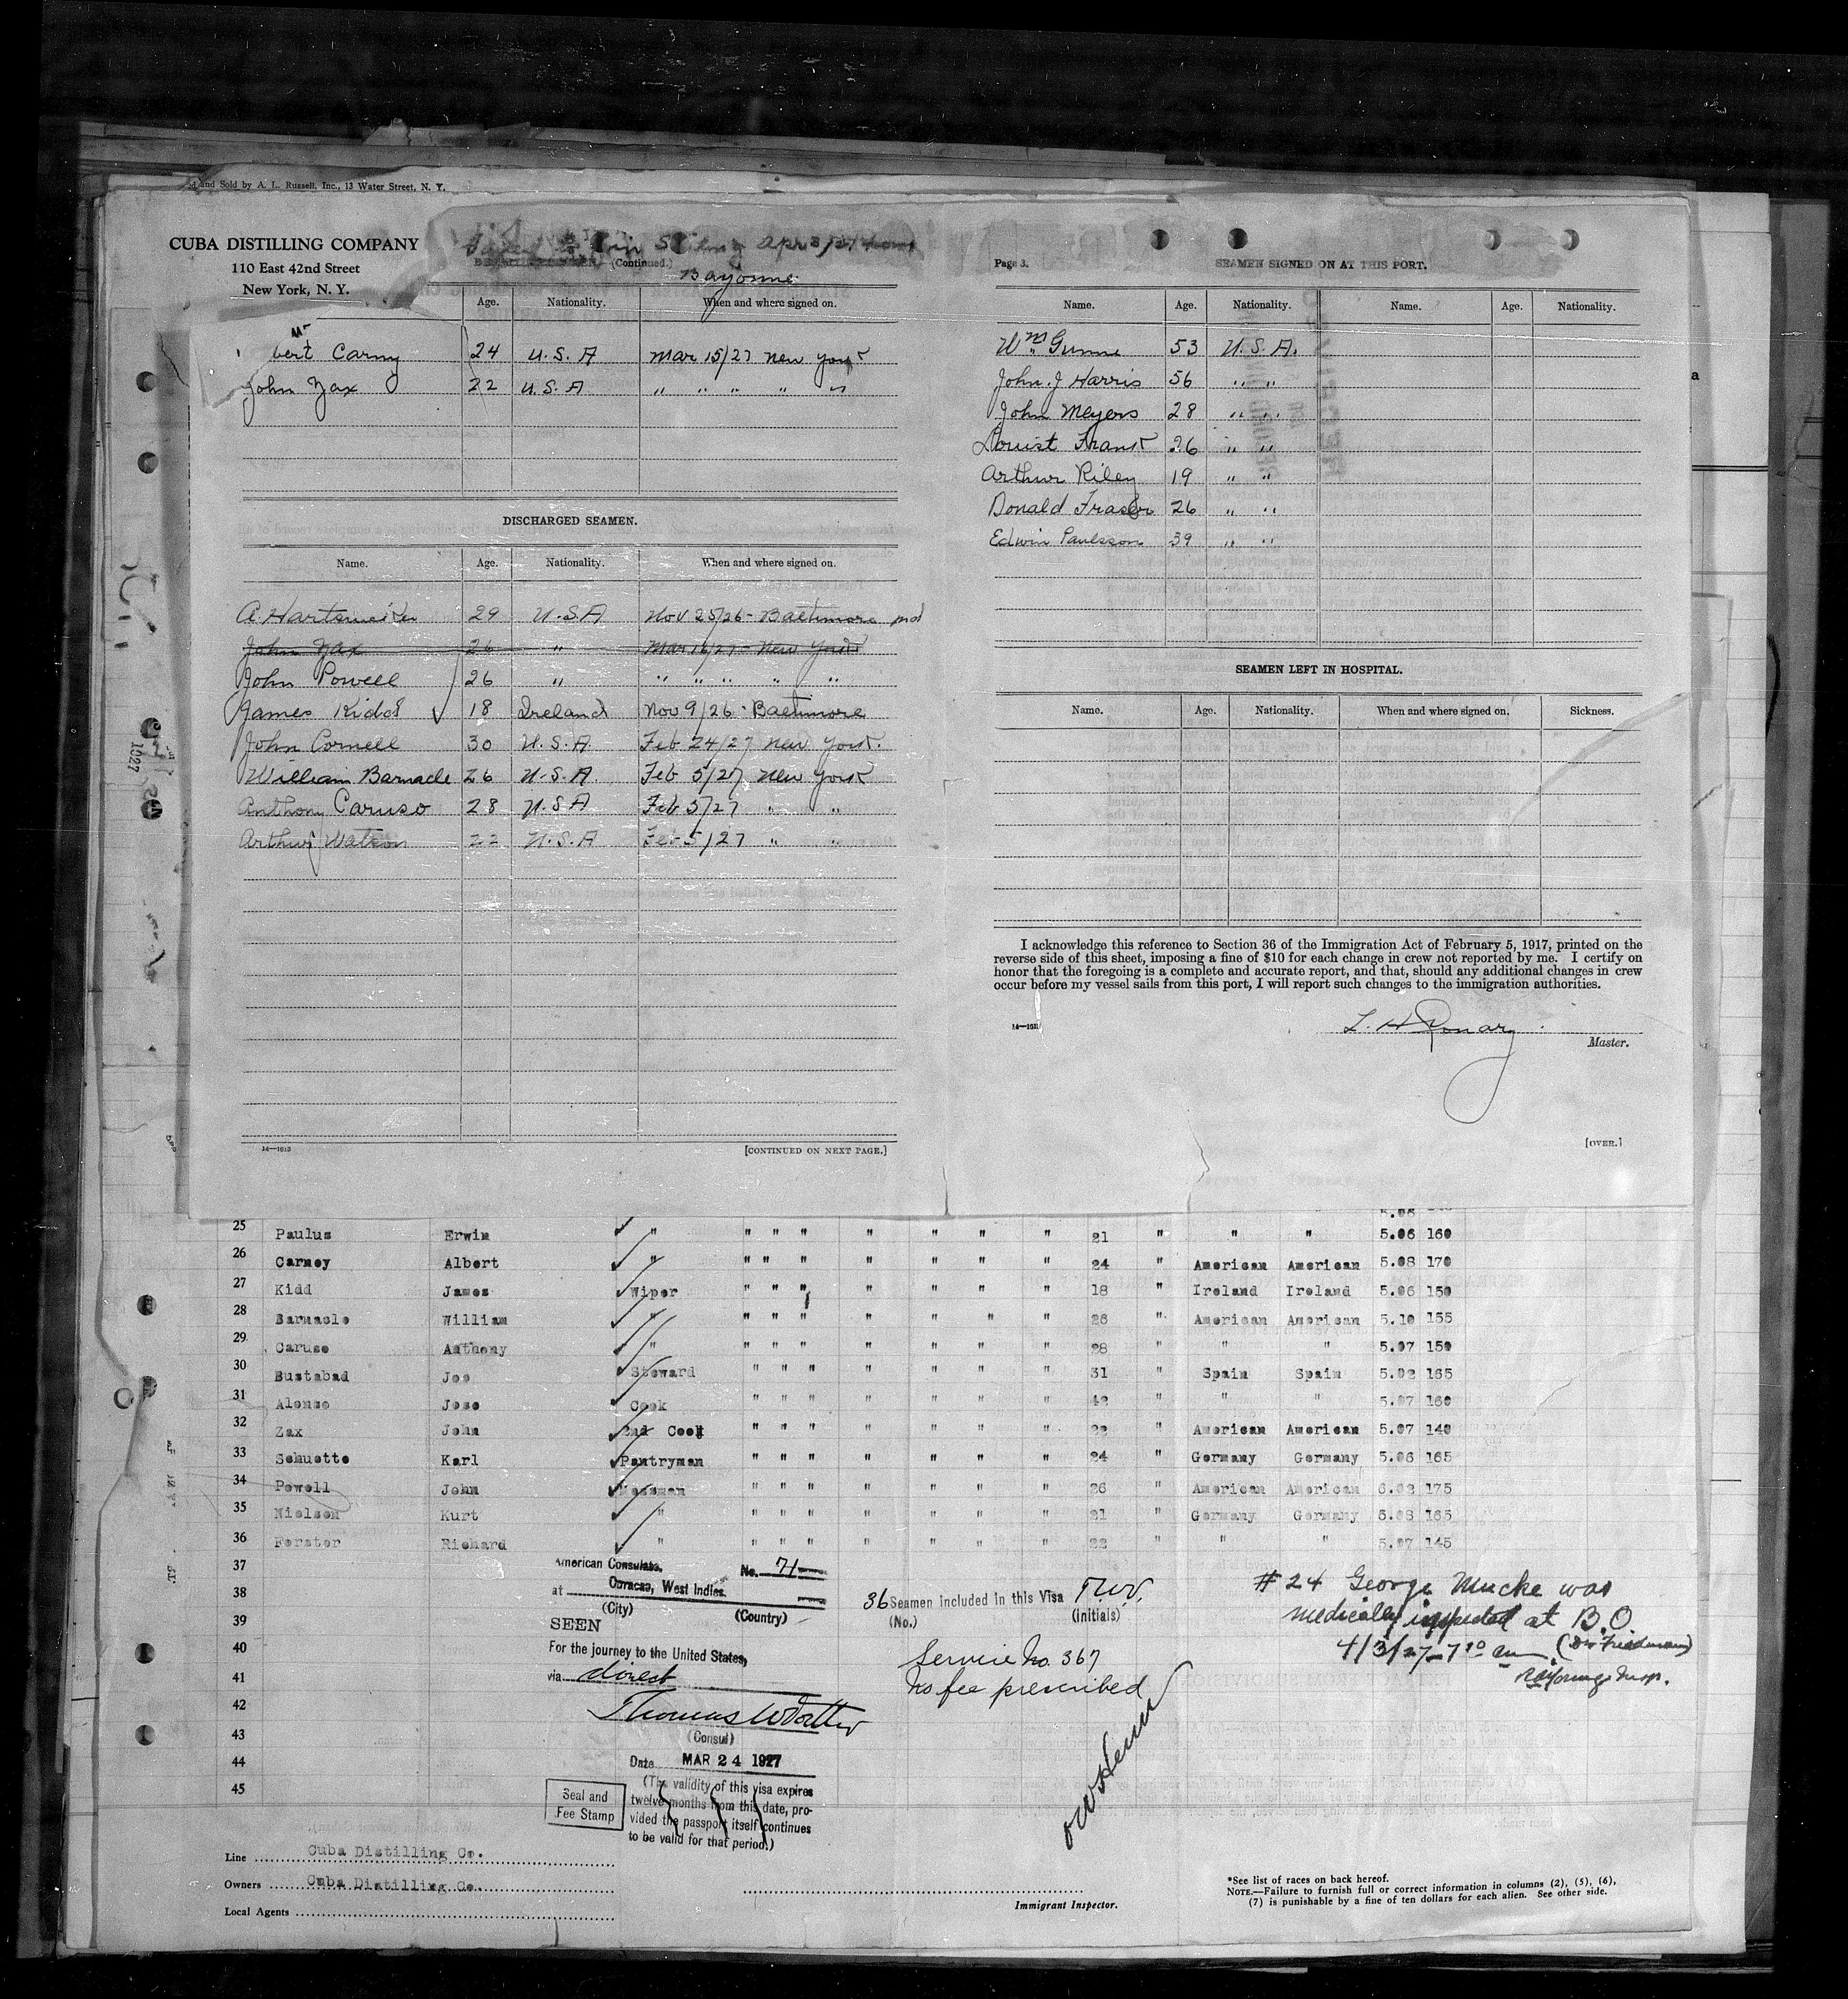 and Sold by A. L. Russell, Inc., 13 Water Street, N. Y.
CUBA DISTILLING COMPANY
110 East 42nd Street
New York, N. Y.
(Continued.)
Bayonne
Age. Nationality. When and where signed on.
bert Carny 24 U.S.A Mar 15/27 New York
John Zax 22 U.S.A " " " " "
DISCHARGED SEAMEN.
Name. Age. Nationality. When and where signed on.
A Hartsmeiker 29 U.S.A Nov 25/26 - Baltimore md
John Zax 26 " Mar 16/27 - New York
John Powell 26 " " " " " "
James Kidd 18 Ireland Nov 9/26 - Baltimore
John Cornell 30 U.S.A. Feb 24/27 New York.
William Barnacle 26 U.S.A. Feb 5/27 New York
Anthony Caruso 28 U.S.A Feb 5/27 " "
Arthur Watson 22 U.S.A Feb 5/27 " "
14—1613
[CONTINUED ON NEXT PAGE.]
Page 3.
SEAMEN SIGNED ON AT THIS PORT.
Name. Age. Nationality. Name. Age. Nationality.
Wm Gunne 53 U.S.A.
John. J Harris 56 " "
John Meyers 28 " "
Louist Frank 26 " "
Arthur Riley 19 " "
Donald Fraser 26 " "
Edwin Paulsson 39 " "
SEAMEN LEFT IN HOSPITAL.
Name. Age. Nationality. When and where signed on. Sickness.
I acknowledge this reference to Section 36 of the Immigration Act of February 5, 1917, printed on the
reverse side of this sheet, imposing a fine of $10 for each change in crew not reported by me. I certify on
honor that the foregoing is a complete and accurate report, and that, should any additional changes in crew
occur before my vessel sails from this port, I will report such changes to the immigration authorities.
14—1613
L. H. Ronary
Master.
[OVER.]
25 Paulus Erwin " " " " " " " 21 " " " 5.06 160
26 Carney Albert " " " " " " " 24 " American American 5.08 170
27 Kidd James Wiper " " " " " " 18 " Ireland Ireland 5.06 150
28 Barnacle William " " " " " " " 26 " American American 5.10 155
29 Caruso Anthony " " " " " " " 28 " " " 5.07 150
30 Bustabad Jos Steward " " " " " " 31 " Spain Spain 5.02 165
31 Alonso Jose Cook " " " " " " 42 " " " 5.07 160
32 Zax John 2nd Cook " " " " " " 22 " American American 5.07 140
33 Schuette Karl Pantryman " " " " " " 24 " Germany Germany 5.06 165
34 Powell John Messman " " " " " " 26 " American American 6.02 175
35 Nielsen Kurt " " " " " " " 21 " Germany Germany 5.08 165
36 Forster Richard " " " " " " " 22 " " " 5.07 145
37
38
39
40
41
42
43
44
45
American Consulate, No. 71
at Curacao, West Indies.
(City) (Country)
SEEN
For the journey to the United States,
via direct
(Consul)
Date MAR 24 1927
(The validity of this visa expires
twelve months from this date, pro-
vided the passport itself continues
to be valid for that period.)
Seal and
Fee Stamp
36 Seamen included in this Visa T.W.V.
(No.) (Initials)
Service No. 367
No fee prescribed
#24 George Mucke was
medically inspected at B.O.
4/3/27 - 7 30 am (Dr Friedman)
Insp.
Line Cuba Distilling Co.
Owners Cuba Distilling Co.
Local Agents
Immigrant Inspector.
*See list of races on back hereof.
NOTE.—Failure to furnish full or correct information in columns (2), (5), (6),
(7) is punishable by a fine of ten dollars for each alien. See other side.